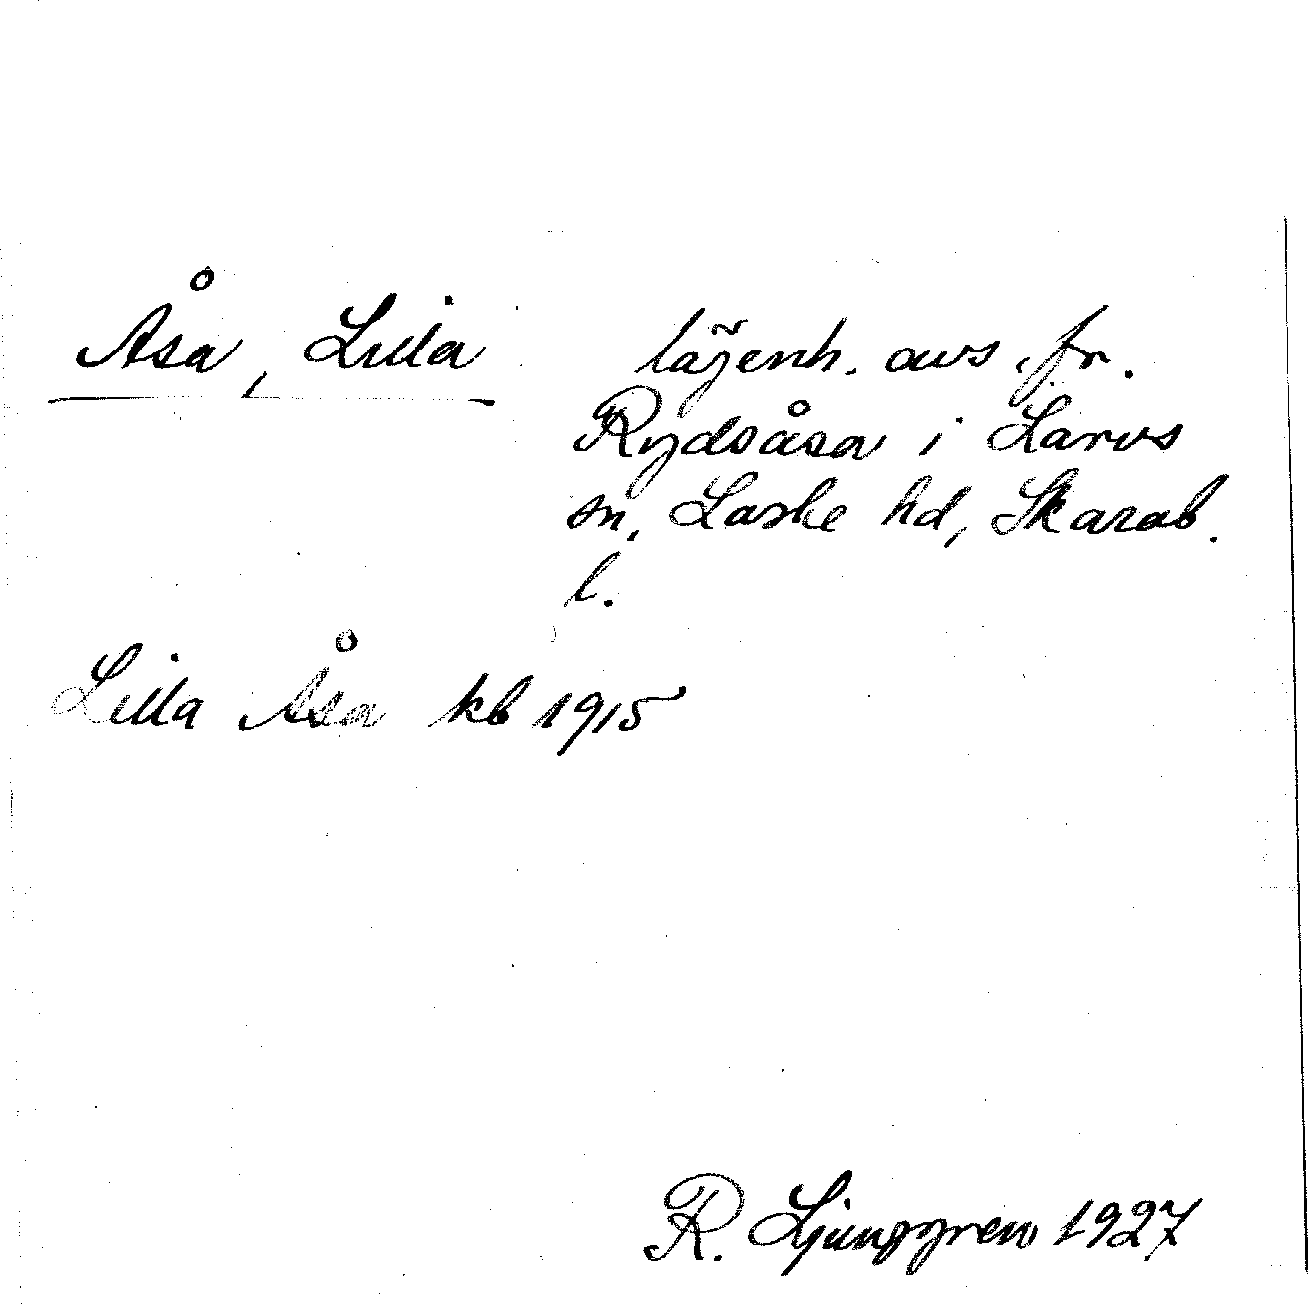 Åsa, Lilla lägenh. avs. fr.
Rydsåsa i Larvs
sn, Laske hd, Skarab.
l.
Lilla Åsa kb 1915
R. Ljunggren 1927